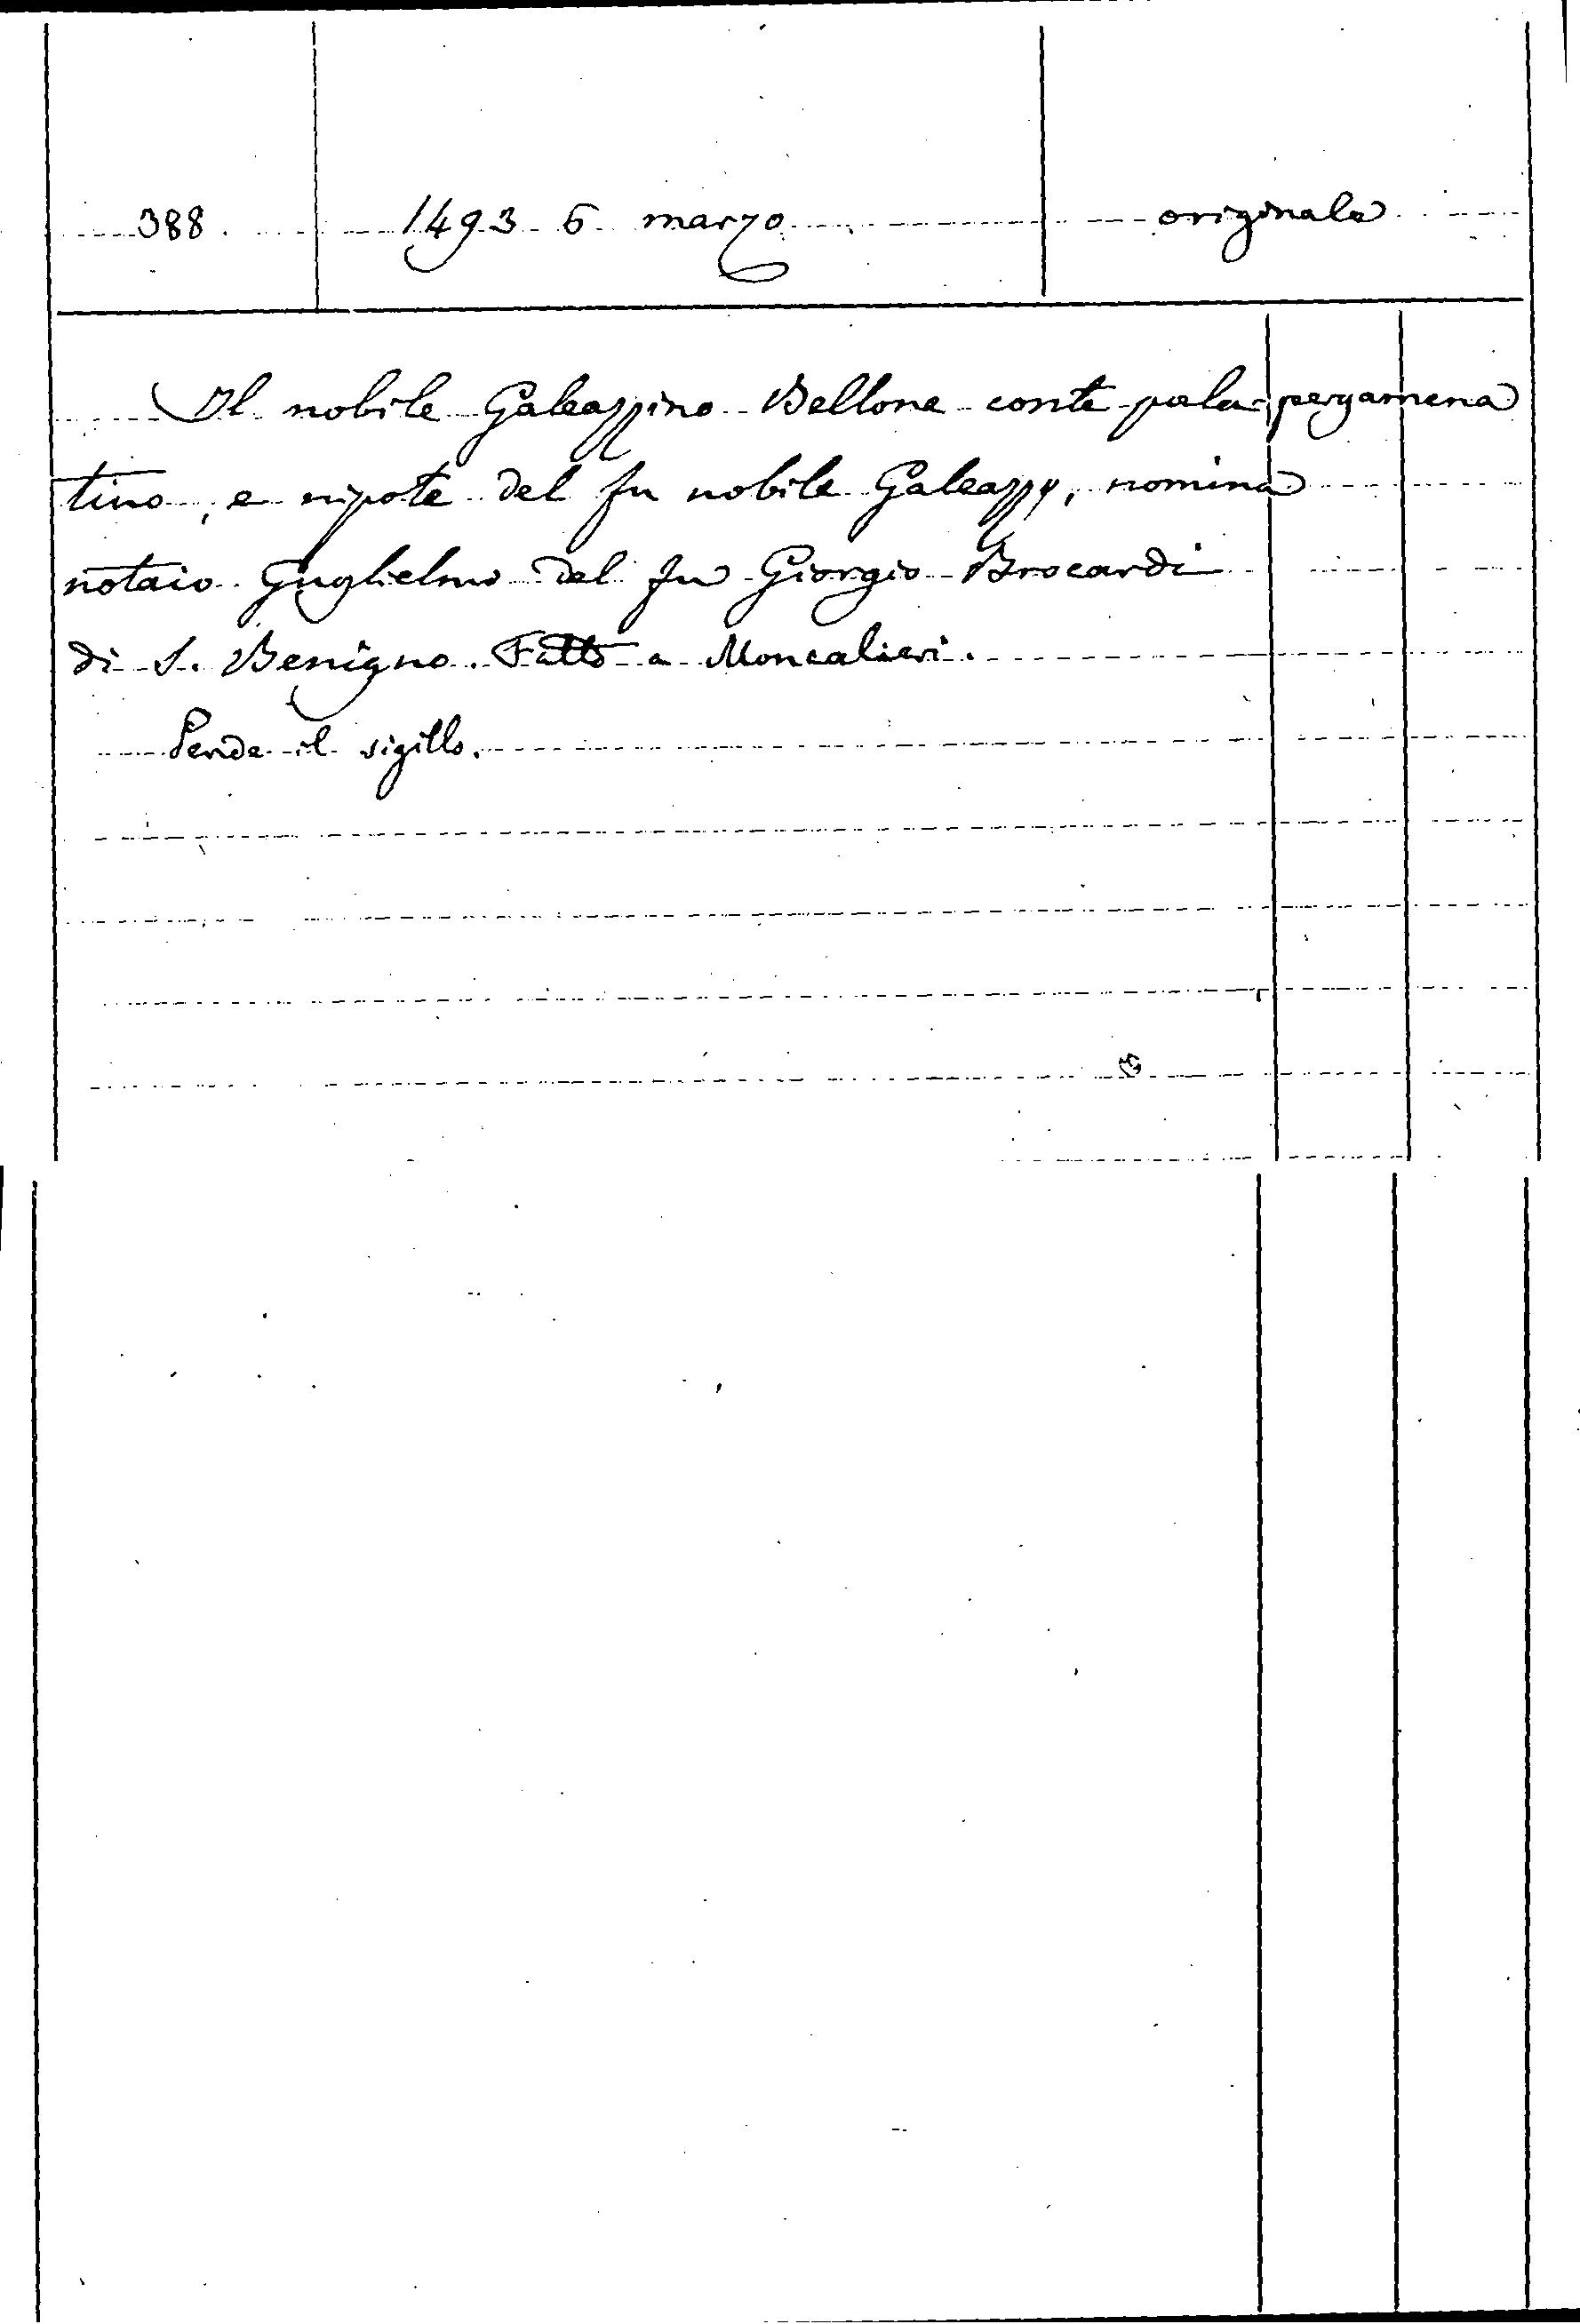 388. 1493 6 marzo originale
Il nobile Galeazzino Bellone conte pala- pergamena
tino, e nipote del fu nobile Galeazzo, nomina
notaio Guglielmo del fu Giorgio Brocardi
di S. Benigno. Fatto a Moncalieri.
Pende il sigillo.